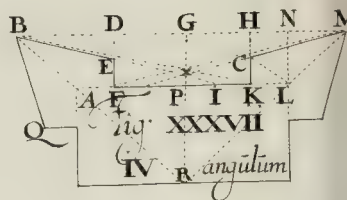 B D G H N M
E C
A F P I K L
Q fig. XXXVII
IV R angulum